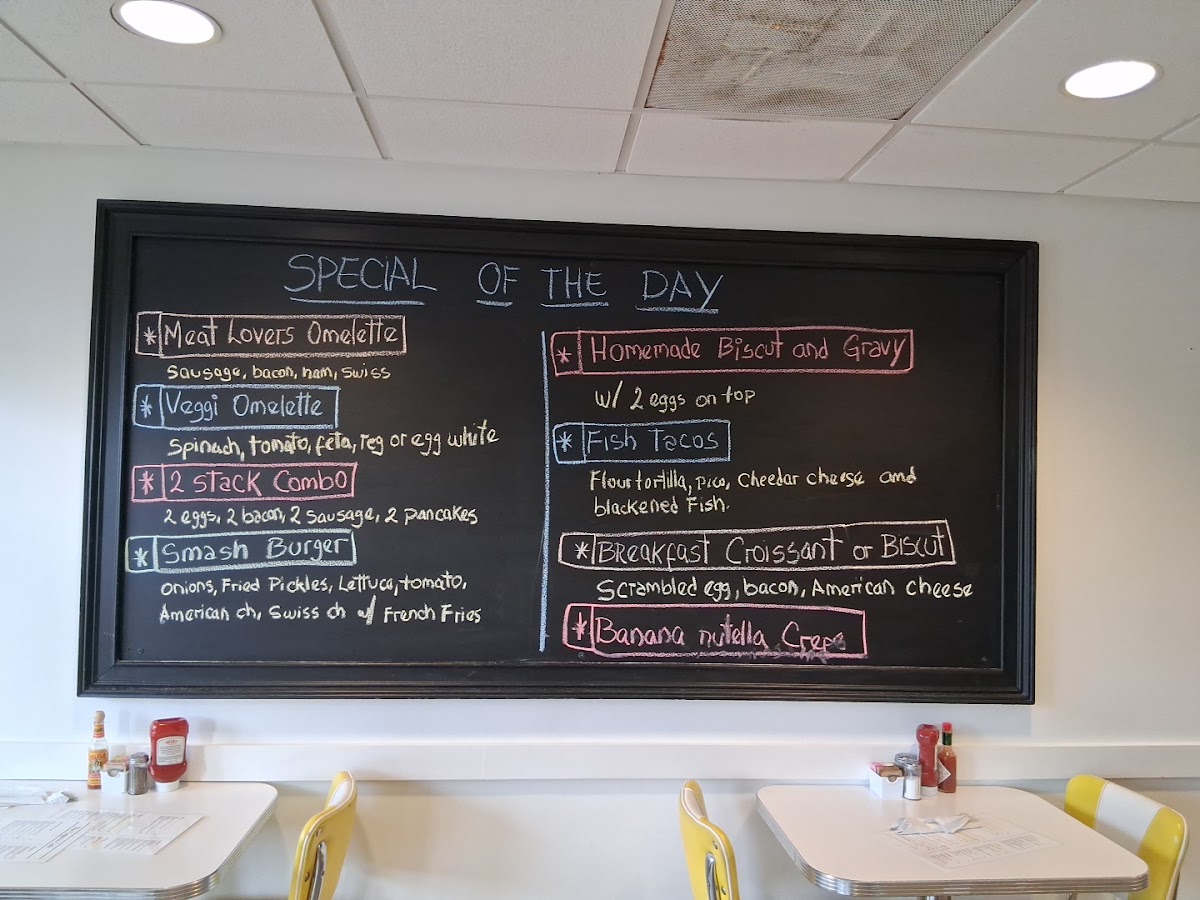 SPECIAL OF THE DAY
* Meat Lovers Omelette
Sausage, bacon, ham, swiss
* Veggi Omelette
Spinach, tomato, feta, reg or egg white
* 2 stack Combo
2 eggs, 2 bacon, 2 sausage, 2 pancakes
* Smash Burger
onions, Fried Pickles, Lettuce, tomato,
American ch, Swiss ch w/ French Fries
* Homemade Biscut and Gravy
w/ 2 eggs on top
* Fish Tacos
Flour tortilla, pico, Cheedar cheese and
blackened Fish.
* BREAKFAST Croissant or Biscut
Scrambled egg, bacon, American cheese
* Banana nutella Crepe